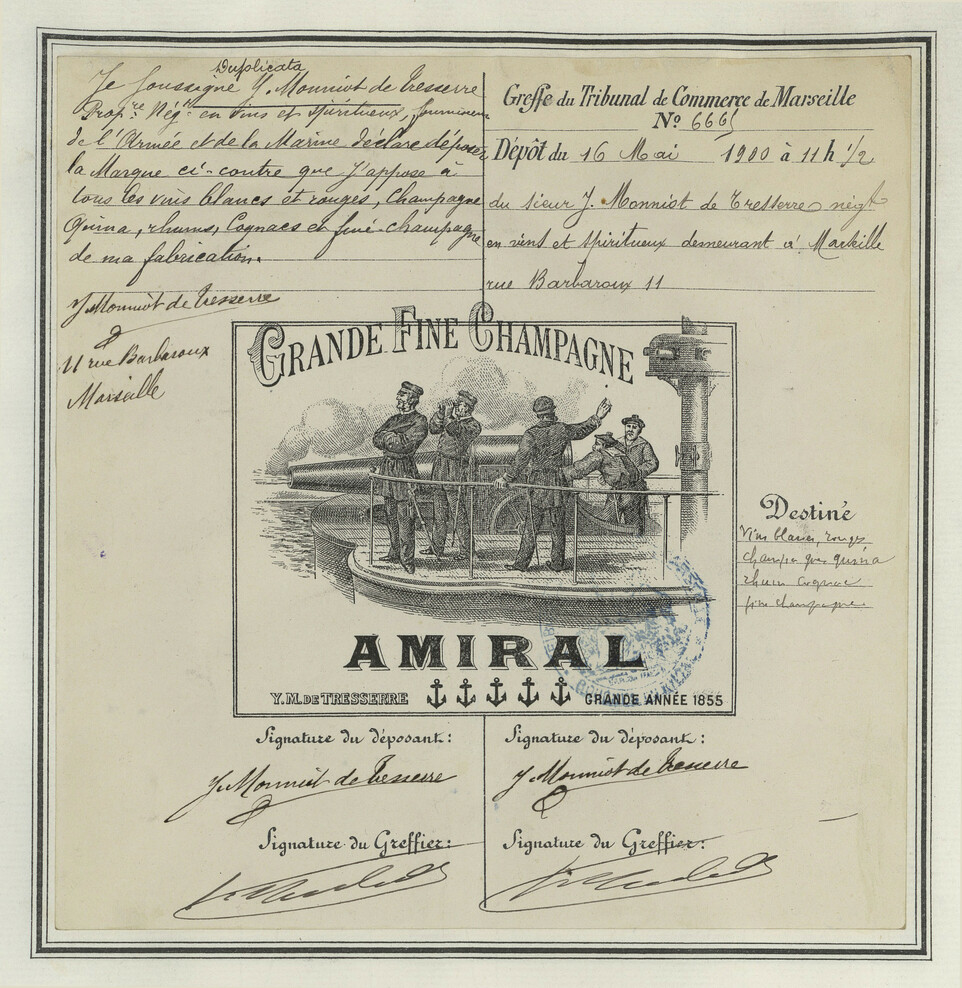 Duplicata
Je soussigné Y. Monniot de Tresserre
Propre Négt en vins et spiritueux, fournisseur
de l'Armée et de la Marine déclare déposer
la Marque ci-contre que j'appose à
tous les vins blancs et rouges, Champagne
Quina, rhums, Cognacs et fine-champagne
de ma fabrication.
Y Monniot de Tresserre
11 rue Barbaroux
Marseille
Greffe du Tribunal de Commerce de Marseille
No 6665
Dépôt du 16 Mai 1900 à 11 h 1/2
du sieur J. Monniot de Tresserre négt
en vins et spiritueux demeurant à Marseille
rue Barbaroux 11
GRANDE FINE CHAMPAGNE
AMIRAL
Y. M. DE TRESSERRE
GRANDE ANNÉE 1855
Destiné
Vins blancs, rouges
champagnes quina
rhum cognac
fine champagne
Signature du déposant:
Y Monniot de Tresserre
Signature du Greffier:
Signature du déposant:
Y Monniot de Tresserre
Signature du Greffier: